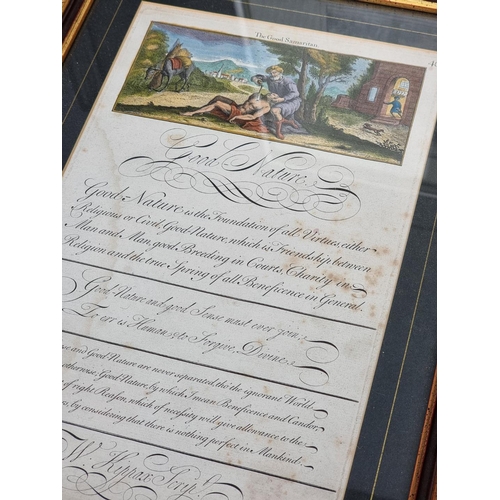 The Good Samaritan.
Good Nature
Good-Nature is the Foundation of all Virtues, either
Religious or Civil, Good-Nature, which is Friendship between
Man and Man, good Breeding in Courts, Charity in
Religion and the true Spring of all Beneficence in General.
Good-Nature and good Sense must ever join;
To err is Human & to Forgive, Divine.
and Good-Nature are never separated, tho' the ignorant World
otherwise. Good Nature, by which I mean Beneficence and Candor
of right Reason, which of necessity will give allowance to the
by considering that there is nothing perfect in Mankind.
W. Kippax Scrip.t